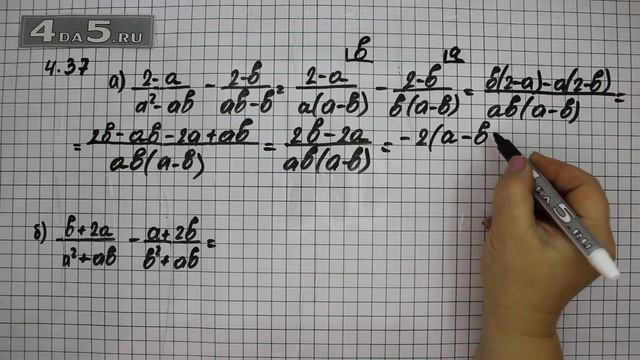 4DA5.RU
4.37
а) (2-a)/(a²-ab) - (2-b)/(ab-b²) = (2-a)/(a(a-b)) ⌊b - (2-b)/(b(a-b)) ⌊a = (b(2-a)-a(2-b))/(ab(a-b)) =
= (2b-ab-2a+ab)/(ab(a-b)) = (2b-2a)/(ab(a-b)) = -2(a-b
б) (b+2a)/(a²+ab) - (a+2b)/(b²+ab) =
DA5.RU